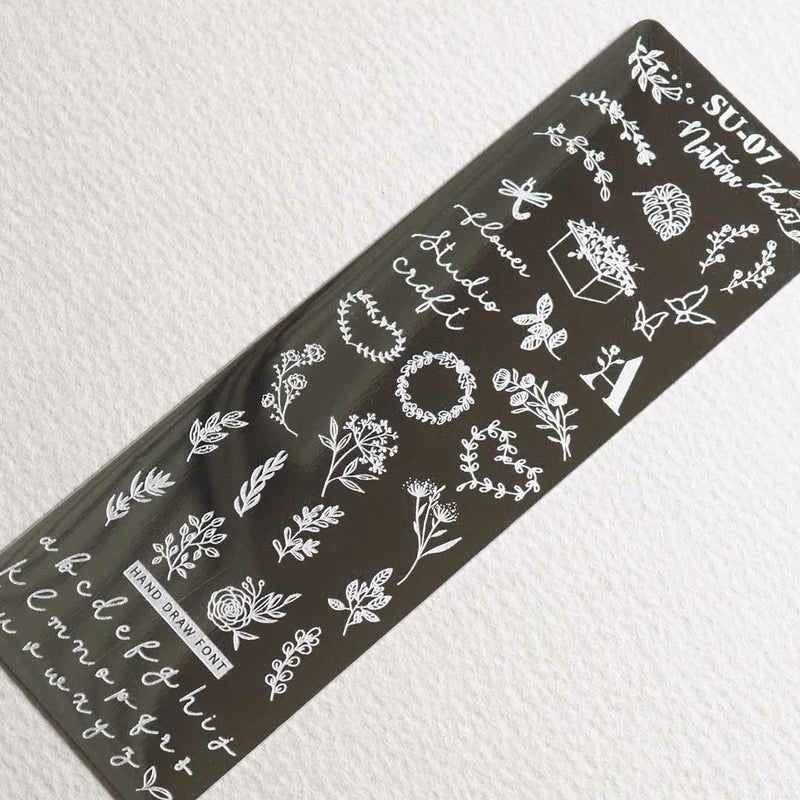 SU-07
Nature
flower
Studio
craft
A
HAND DRAW FONT
a b c d e f g h i j
k l m n o p q r s t
u v w x y z